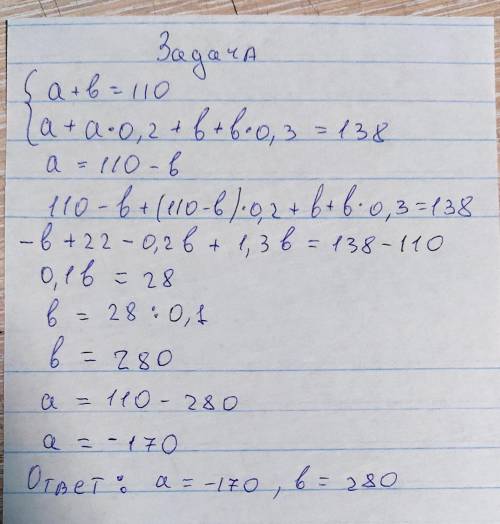 Задача
a + b = 110
a + a · 0,2 + b + b · 0,3 = 138
a = 110 - b
110 - b + (110 - b) · 0,2 + b + b · 0,3 = 138
- b + 22 - 0,2b + 1,3b = 138 - 110
0,1b = 28
b = 28 : 0,1
b = 280
a = 110 - 280
a = -170
Ответ: a = -170, b = 280